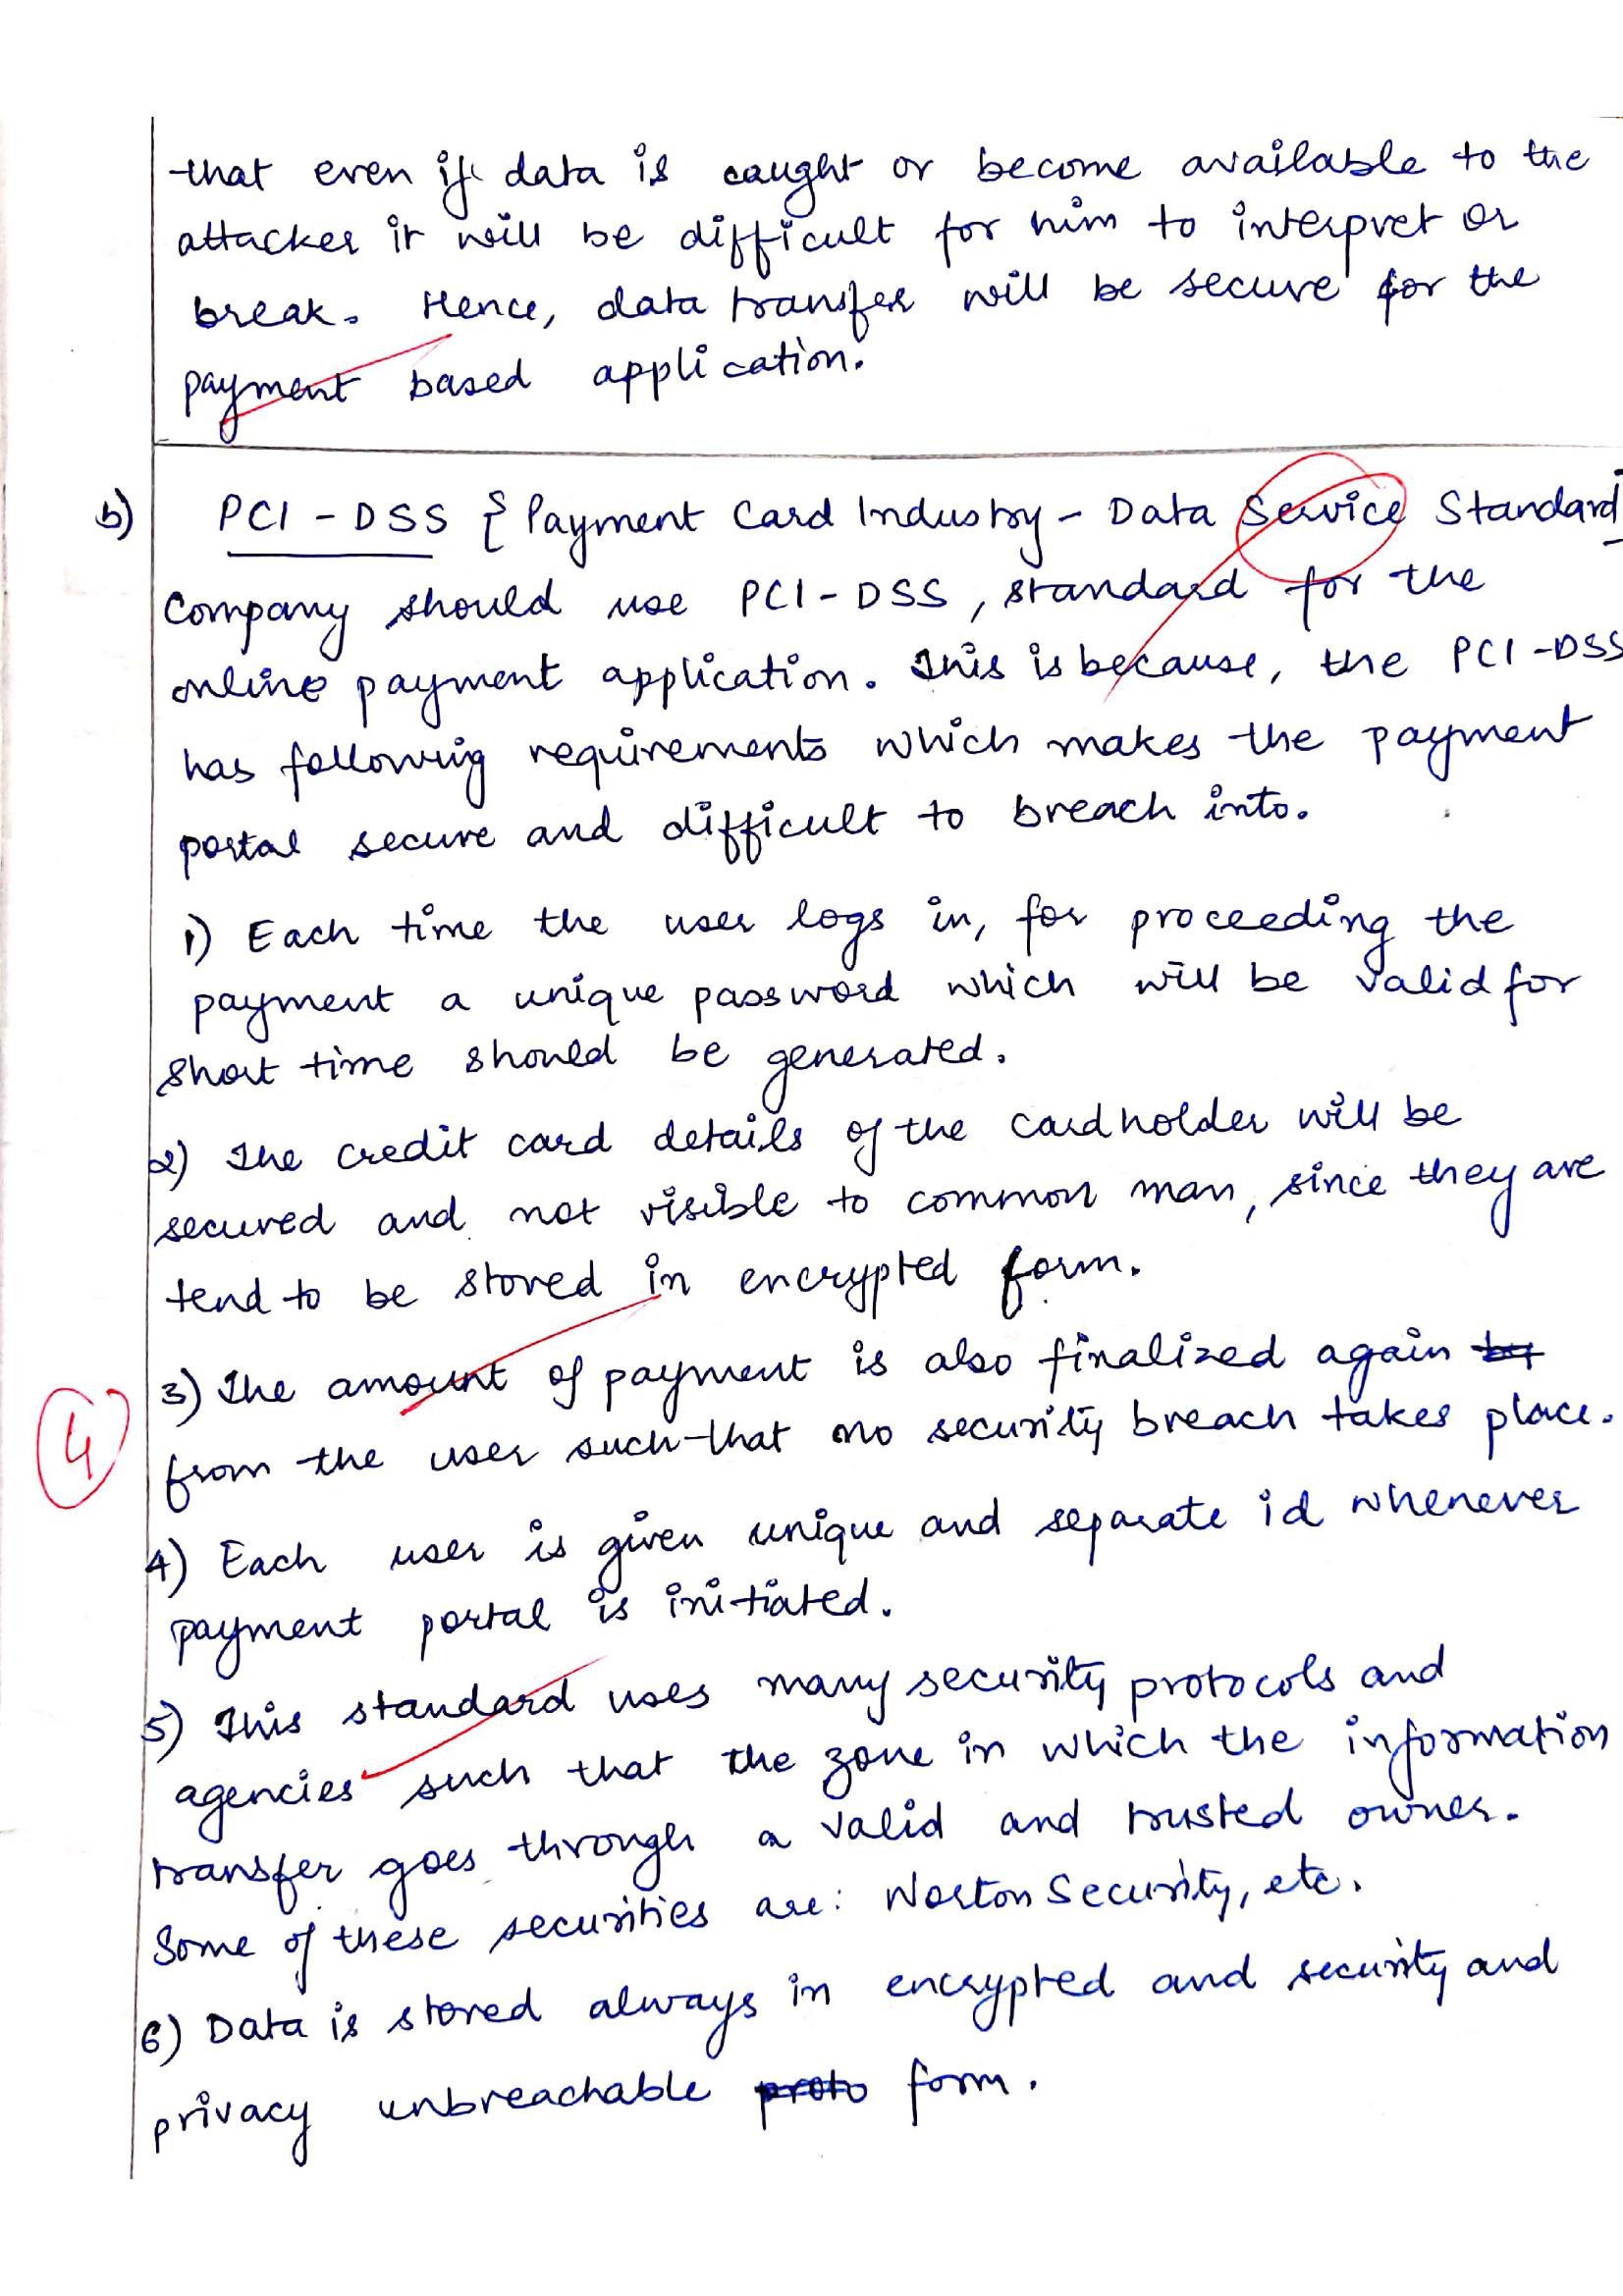 that even if data is caught or become available to the
attacker it will be difficult for him to interpret or
break. Hence, data transfer will be secure for the
payment based application.
b) PCI - DSS { Payment Card Industry - Data Service Standard
Company should use PCI - DSS , standard for the
online payment application. This is because, the PCI - DSS
has following requirements which makes the payment
portal secure and difficult to breach into.
1) Each time the user logs in, for proceeding the
payment a unique password which will be valid for
short time should be generated.
2) The credit card details of the cardholder will be
secured and not visible to common man, since they are
tend to be stored in encrypted form.
3) The amount of payment is also finalized again by
4
from the user such that no security breach takes place.
4) Each user is given unique and separate id whenever
payment portal is initiated.
5) This standard uses many security protocols and
agencies such that the zone in which the information
transfer goes through a valid and trusted owner.
Some of these securities are: Norton Security, etc.
6) Data is stored always in encrypted and security and
privacy unbreachable proto form.